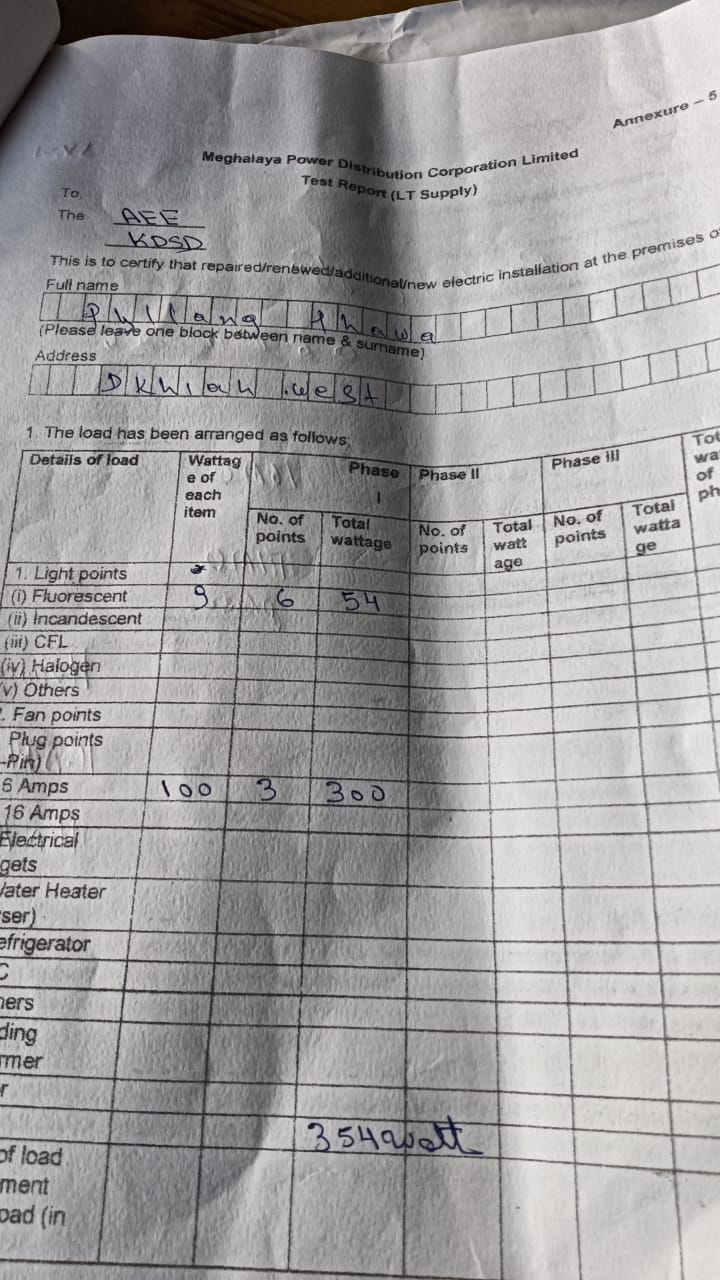 Annexure – 5
Meghalaya Power Distribution Corporation Limited
Test Report (LT Supply)
To,
The AEE
KDSD
This is to certify that repaired/renewed/additional/new electric installation at the premises o
Full name
(Please leave one block between name & surname)
Address
Dkhiah west
1. The load has been arranged as follows;
Details of load Wattag e of each item Phase I Phase II Phase III Tot wa of ph
No. of points Total wattage No. of points Total watt age No. of points Total watta ge
1. Light points
(i) Fluorescent 9 6 54
(ii) Incandescent
(iii) CFL
(iv) Halogen
v) Others
. Fan points
Plug points
-Pin)
6 Amps 100 3 300
16 Amps
Electrical
gets
ater Heater
ser)
efrigerator
C
ners
ding
rmer
r
354 watt
of load
ment
oad (in